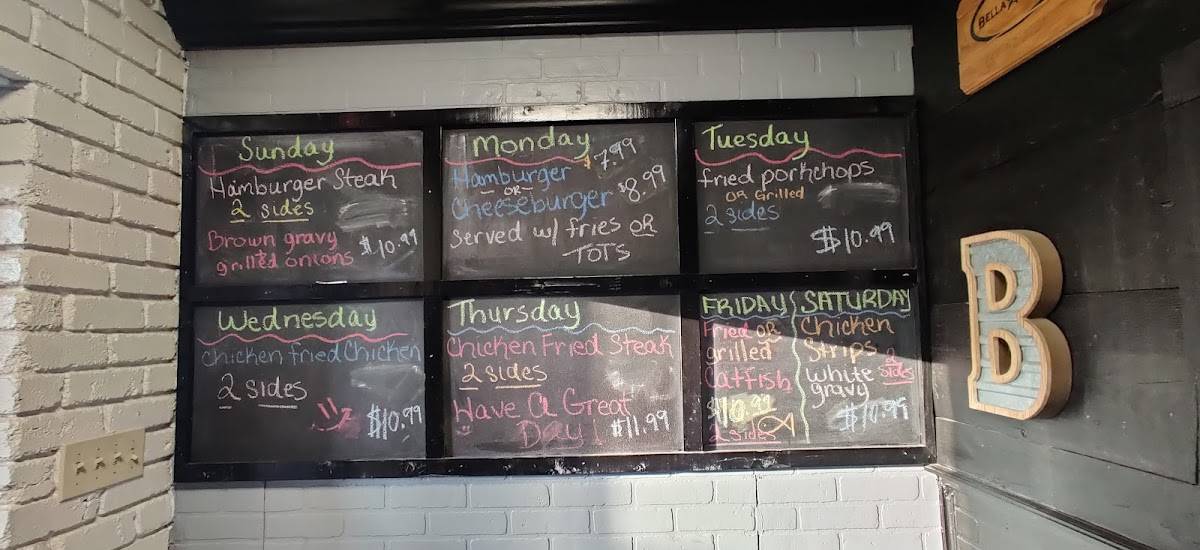 Sunday
Hamburger Steak
2 sides
Brown gravy
grilled onions
$10.99
Monday
$7.99
Hamburger
OR
$8.99
Cheeseburger
Served w/ fries OR
TOTS
Tuesday
fried porkchops
OR Grilled
2 sides
$10.99
Wednesday
Chicken fried Chicken
2 sides
$10.99
Thursday
Chicken Fried Steak
2 sides
Have A Great
Day!
$11.99
FRIDAY
Fried OR
grilled
Catfish
$10.99
2 sides
SATURDAY
Chicken
Strips
2 sides
white
gravy
$10.99
BELLA
B